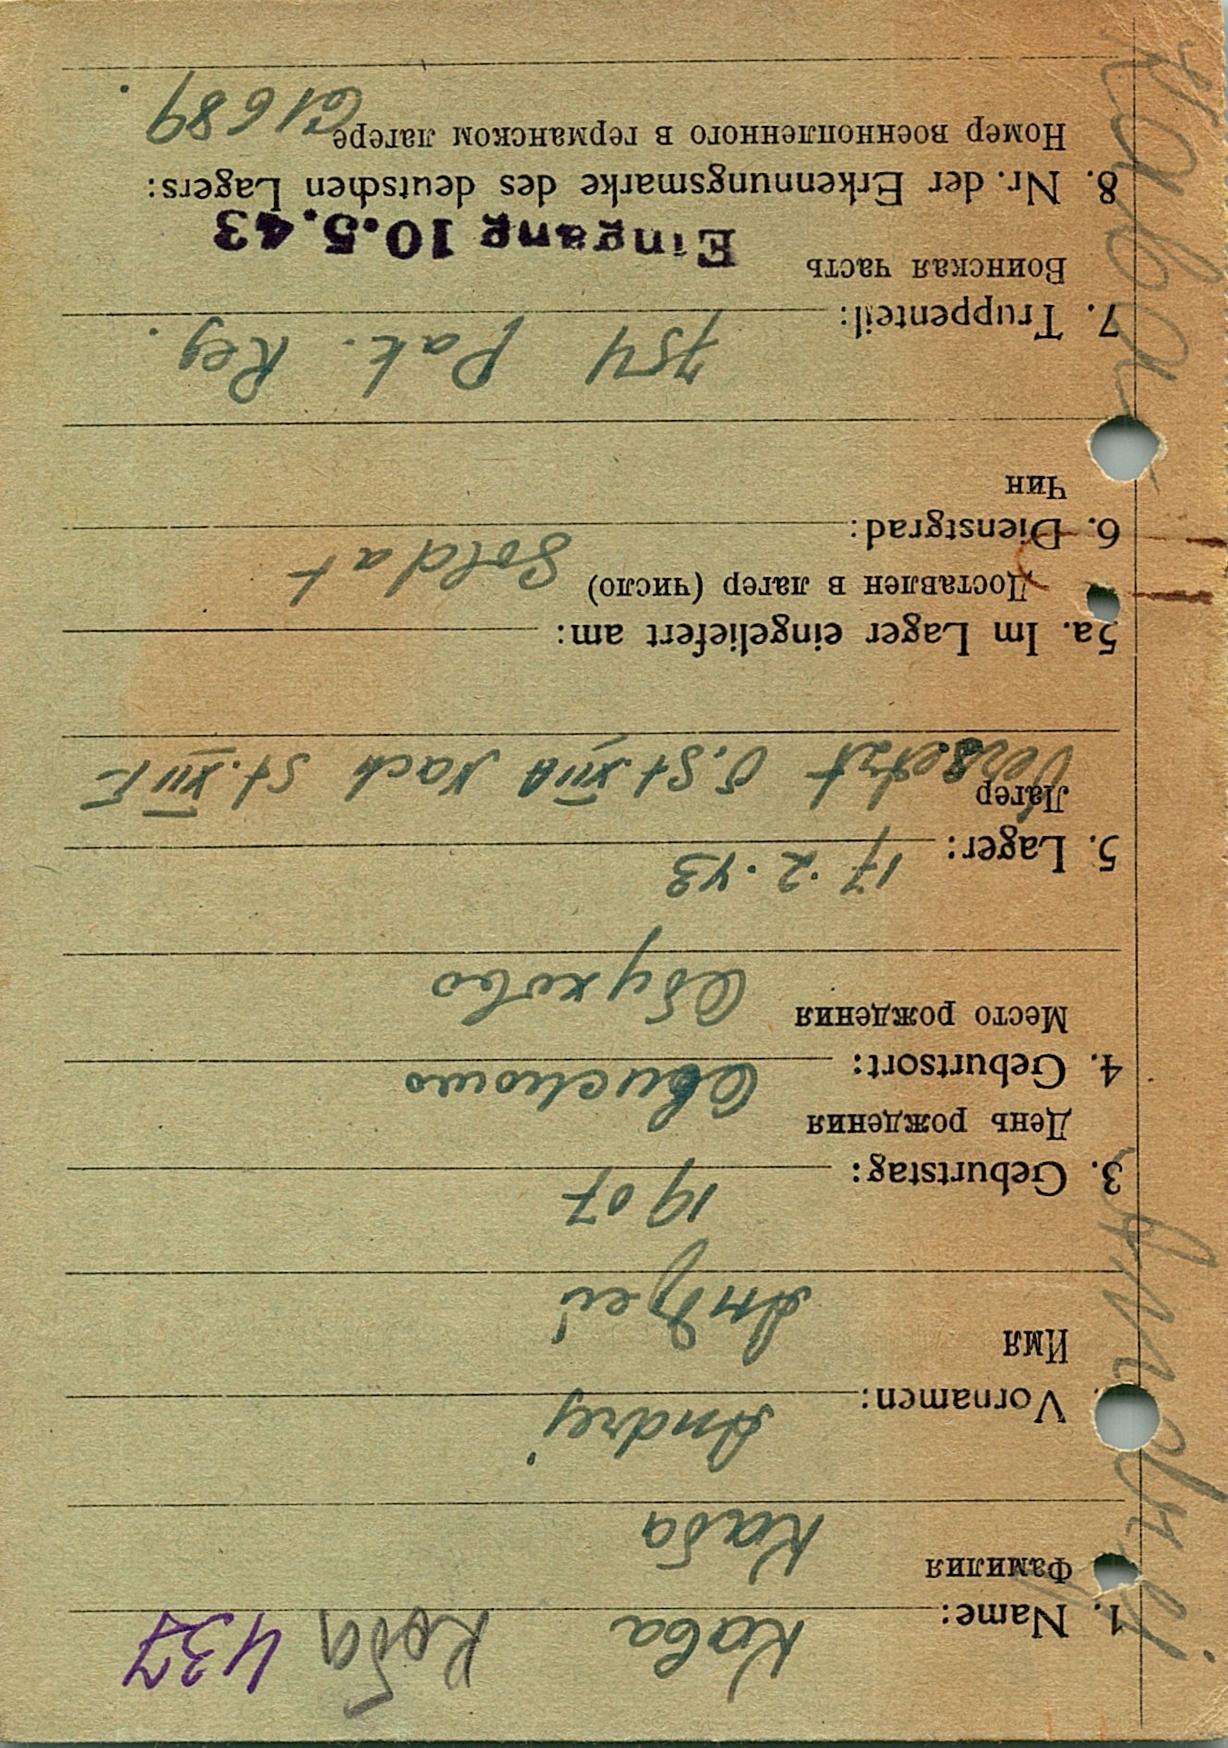 Kaba Коба 437
1. Name:
Фамилия
Каба
Andrej
Vornamen:
Имя
Андрей
1907
3. Geburtstag:
День рождения
Obuchowo
4. Geburtsort:
Место рождения
Обухово
17.2.43
5. Lager:
Лагер
Versetzt v. St. XII A nach St. XII F
5a. Im Lager eingeliefert am:
Доставлен в лагер (число)
Soldat
6. Dienstgrad:
Чин
754 Pak. Reg.
7. Truppenteil:
Воинская часть
Eingang 10.5.43
8. Nr. der Erkennungsmarke des deutschen Lagers:
Номер военнопленного в германском лагере
61689
Kaba Andrej